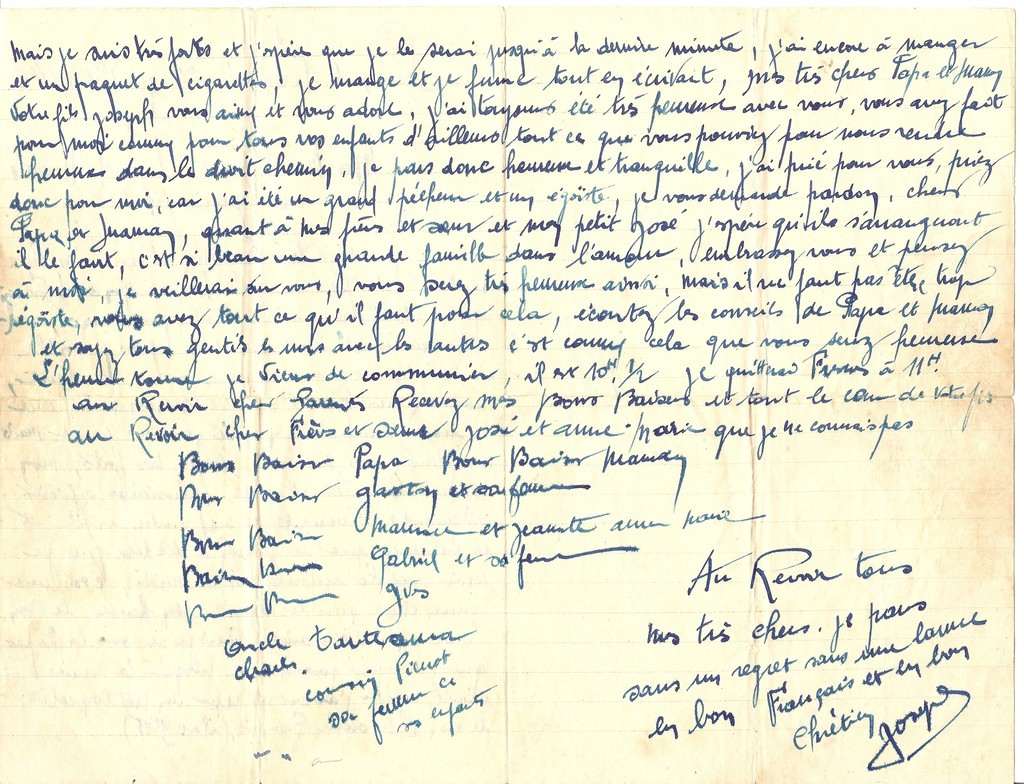 Mais je suis très forts et j'espère que je le serai jusqu'à la dernire minute, j'ai encore à manger
et un paquet de cigarettes, je mange et je fume tout en écrivant, mes très chers Papa et Maman
votre fils Joseph vous aime et vous adore, j'ai toujours été très heureuse avec vous, vous avez fait
pour moi comme pour tous vos enfants d'ailleurs tout ce que vous pouviez pour nous rendre
heureuse dans le droit chemin, je pars donc heureuse et tranquille, j'ai prié pour vous, priez
donc pour moi, car j'ai été un grand pécheur et un égoïste, je vous demande pardon, chers
Papa et Maman, quant à mes frères et sœur et mon petit José j'espère qu'ils s'arrangeront
il le faut, c'est si beau une grande famille dans l'amour, embrassez vous et pensez
à moi, je veillerai sur vous, vous serez très heureuse aussi, mais il ne faut pas être trop
égoïste, vous avez tout ce qu'il faut pour cela, écoutez les conseils de Papa et Maman
et soyez tous gentils les uns avec les autres c'est comme cela que vous serez heureuse
L'heure tourne je viens de communier, il est 10H 1/2 je quitterai Fresnes à 11H
au Revoir cher Parents Recevez mes Bons Baisers et tout le cœur de votre fils
au Revoir cher Frères et sœur José et anne-Marie que je ne connais pas
Bons Baiser Papa Bons Baiser Maman
Bons Baiser gaston et sa femme
Bons Baiser Maurice et jeannette anne marie
Baiser Gabriel et sa femme
Oncle Tante
charles cousin Pierrot
sa femme
ses enfants
Au Revoir tous
mes très chers. je pars
sans un regret sans une larme
en bon Français et en bon
chrétien
Joseph